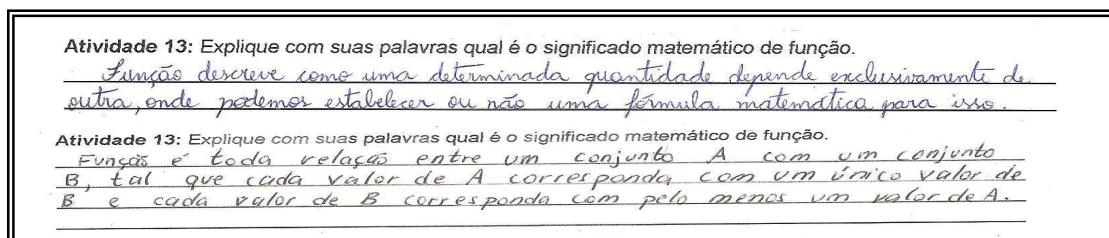 Atividade 13: Explique com suas palavras qual é o significado matemático de função.
Função descreve como uma determinada quantidade depende exclusivamente de
outra, onde podemos estabelecer ou não uma fórmula matemática para isso.
Atividade 13: Explique com suas palavras qual é o significado matemático de função.
Função é toda relação entre um conjunto A com um conjunto
B, tal que cada valor de A corresponda com um único valor de
B e cada valor de B corresponda com pelo menos um valor de A.